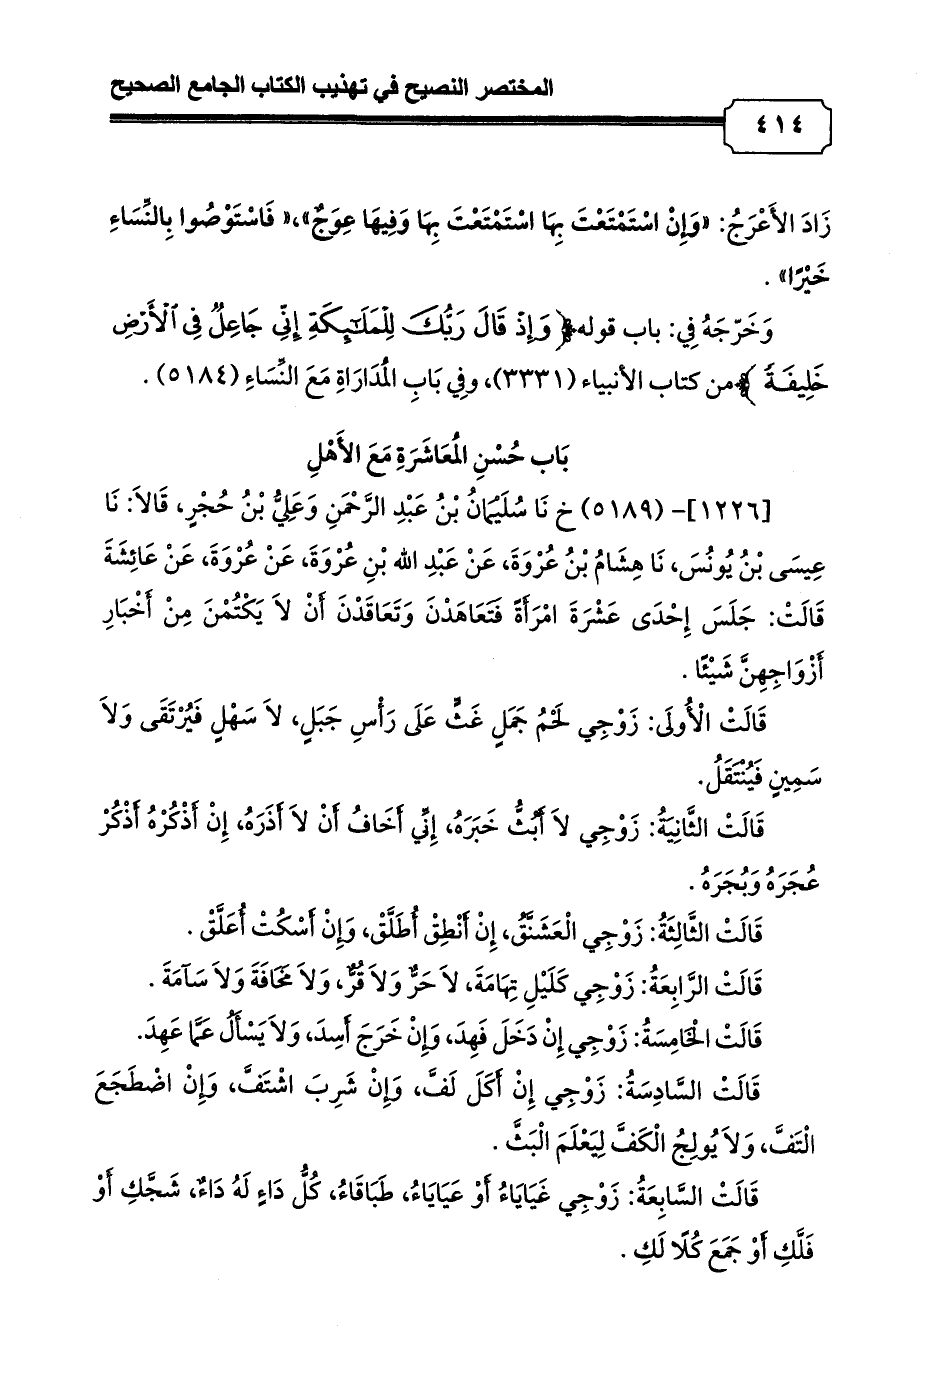 المختصر النصيح في تهذيب الكتاب الجامع الصحيح
٤١٤
زَادَ الأَعْرَجُ: «وَإِنْ اسْتَمْتَعْتَ بِهَا اسْتَمْتَعْتَ بِهَا وَفِيهَا عِوَجٌ»،« فَاسْتَوْصُوا بِالنِّسَاءِ
خَيْرًا» .
وَخَرَّجَهُ فِي: باب قوله ﴿وَإِذْ قَالَ رَبُّكَ لِلْمَلَٰٓئِكَةِ إِنِّي جَاعِلٌ فِي ٱلْأَرْضِ
خَلِيفَةً ﴾ من كتاب الأنبياء (٣٣٣١)، وفِي بَابِ الْمُدَارَاةِ مَعَ النِّسَاءِ (٥١٨٤) .
بَاب حُسْنِ الْمُعَاشَرَةِ مَعَ الأَهْلِ
[١٢٢٦]- (٥١٨٩) خ نَا سُلَيْمَانُ بْنُ عَبْدِ الرَّحْمَنِ وَعَلِيُّ بْنُ حُجْرٍ، قَالاَ: نَا
عِيسَى بْنُ يُونُسَ، نَا هِشَامُ بْنُ عُرْوَةَ، عَنْ عَبْدِ الله بْنِ عُرْوَةَ، عَنْ عُرْوَةَ، عَنْ عَائِشَةَ
قَالَتْ: جَلَسَ إِحْدَى عَشْرَةَ امْرَأَةً فَتَعَاهَدْنَ وَتَعَاقَدْنَ أَنْ لاَ يَكْتُمْنَ مِنْ أَخْبَارِ
أَزْوَاجِهِنَّ شَيْئًا .
قَالَتْ الْأُولَى: زَوْجِي لَحْمُ جَمَلٍ غَثٍّ عَلَى رَأْسِ جَبَلٍ، لاَ سَهْلٍ فَيُرْتَقَى وَلاَ
سَمِينٍ فَيُنْتَقَلُ.
قَالَتْ الثَّانِيَةُ: زَوْجِي لاَ أَبُثُّ خَبَرَهُ، إِنِّي أَخَافُ أَنْ لاَ أَذَرَهُ، إِنْ أَذْكُرْهُ أَذْكُرْ
عُجَرَهُ وَبُجَرَهُ .
قَالَتْ الثَّالِثَةُ: زَوْجِي الْعَشَنَّقُ، إِنْ أَنْطِقْ أُطَلَّقْ، وَإِنْ أَسْكُتْ أُعَلَّقْ .
قَالَتْ الرَّابِعَةُ: زَوْجِي كَلَيْلِ تِهَامَةَ، لاَ حَرٌّ وَلاَ قُرٌّ، وَلاَ مَخَافَةَ وَلاَ سَآمَةَ .
قَالَتْ الْخَامِسَةُ: زَوْجِي إِنْ دَخَلَ فَهِدَ، وَإِنْ خَرَجَ أَسِدَ، وَلاَ يَسْأَلُ عَمَّا عَهِدَ.
قَالَتْ السَّادِسَةُ: زَوْجِي إِنْ أَكَلَ لَفَّ، وَإِنْ شَرِبَ اشْتَفَّ، وَإِنْ اضْطَجَعَ
الْتَفَّ، وَلاَ يُولِجُ الْكَفَّ لِيَعْلَمَ الْبَثَّ .
قَالَتْ السَّابِعَةُ: زَوْجِي غَيَايَاءُ أَوْ عَيَايَاءُ، طَبَاقَاءُ، كُلُّ دَاءٍ لَهُ دَاءٌ، شَجَّكِ أَوْ
فَلَّكِ أَوْ جَمَعَ كُلًّا لَكِ .